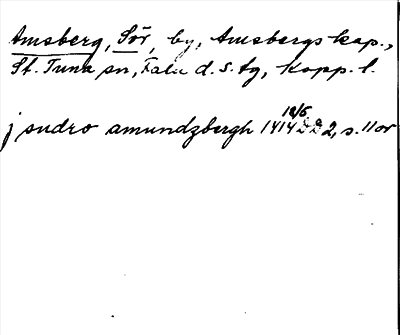 Amsberg, Sör, by, Amsbergs kap.,
St. Tuna sn, Falu d. s. tg, Kopp. l.
j sudro amundzbergh 1414 18/5 DD 2, s. 11 or